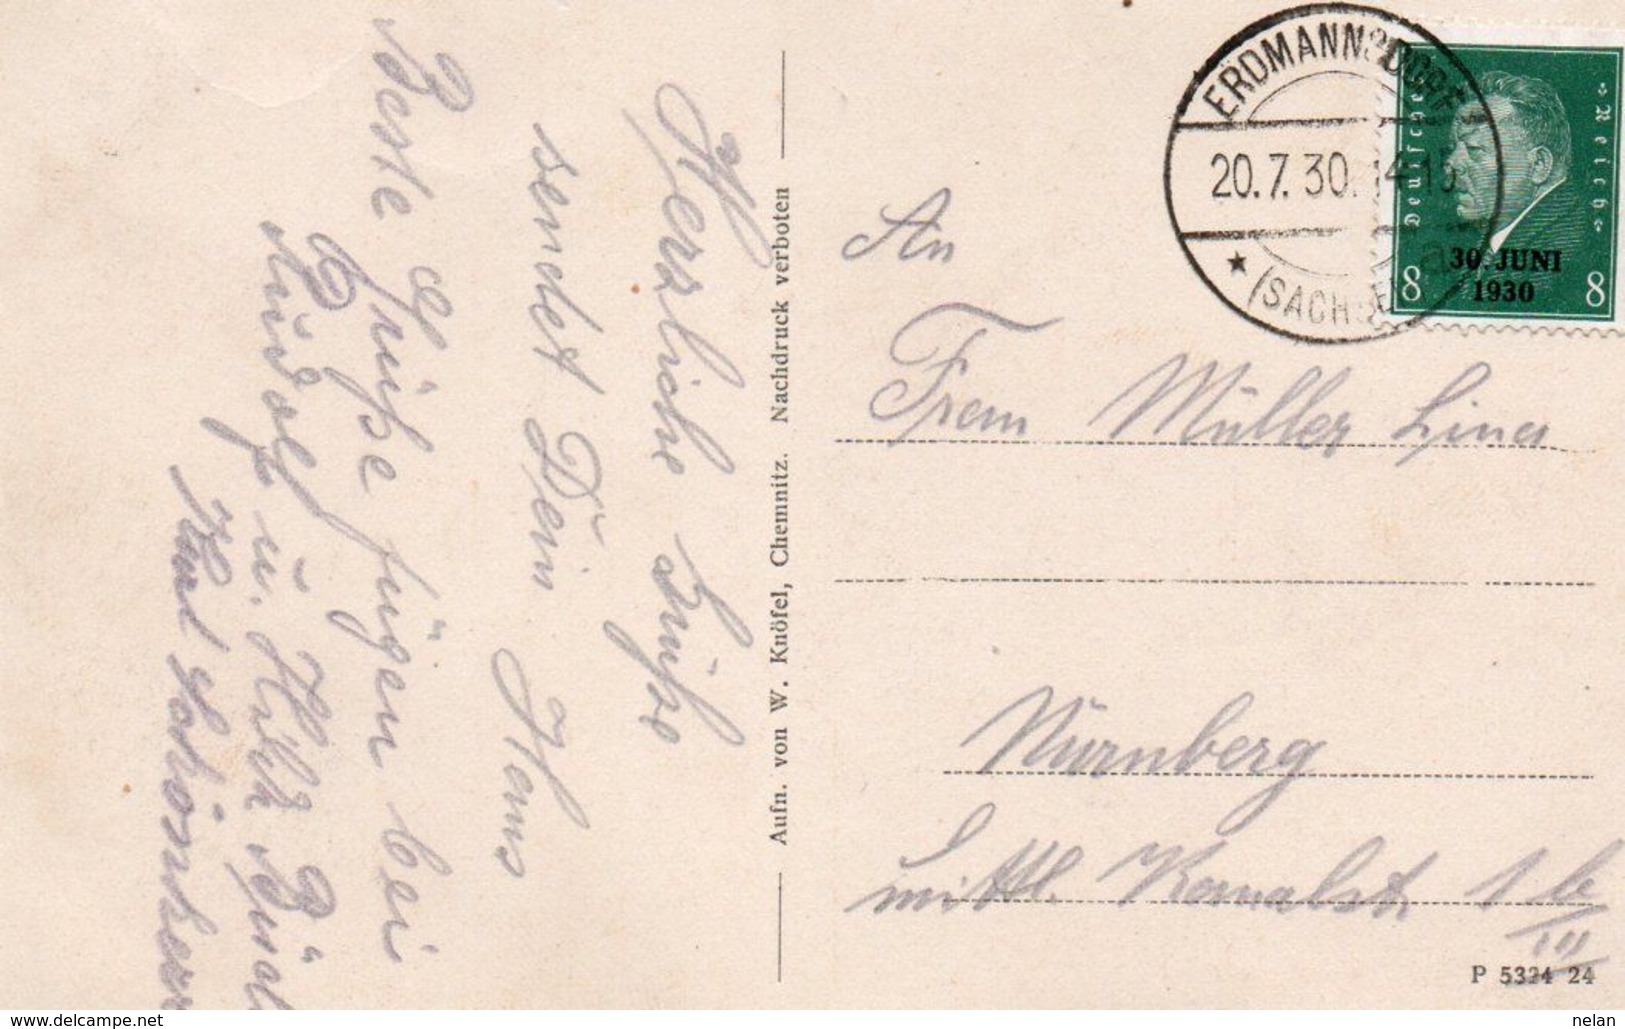 Herzliche Grüße
sendet Dein Hans
Beste Grüße fügen bei
Rudolf u.
Karl Schönherr
Aufn. von W. Knöfel, Chemnitz. Nachdruck verboten
ERDMANNSDORF
20.7.30. 14-15
* (SACHSEN) a
Deutsches Reich
30. JUNI
1930
8 8
An
Frau Müller Lina
Nürnberg
mittl. Kanalstr. 1 b
III
P 5324 24
www.delcampe.net
nelan